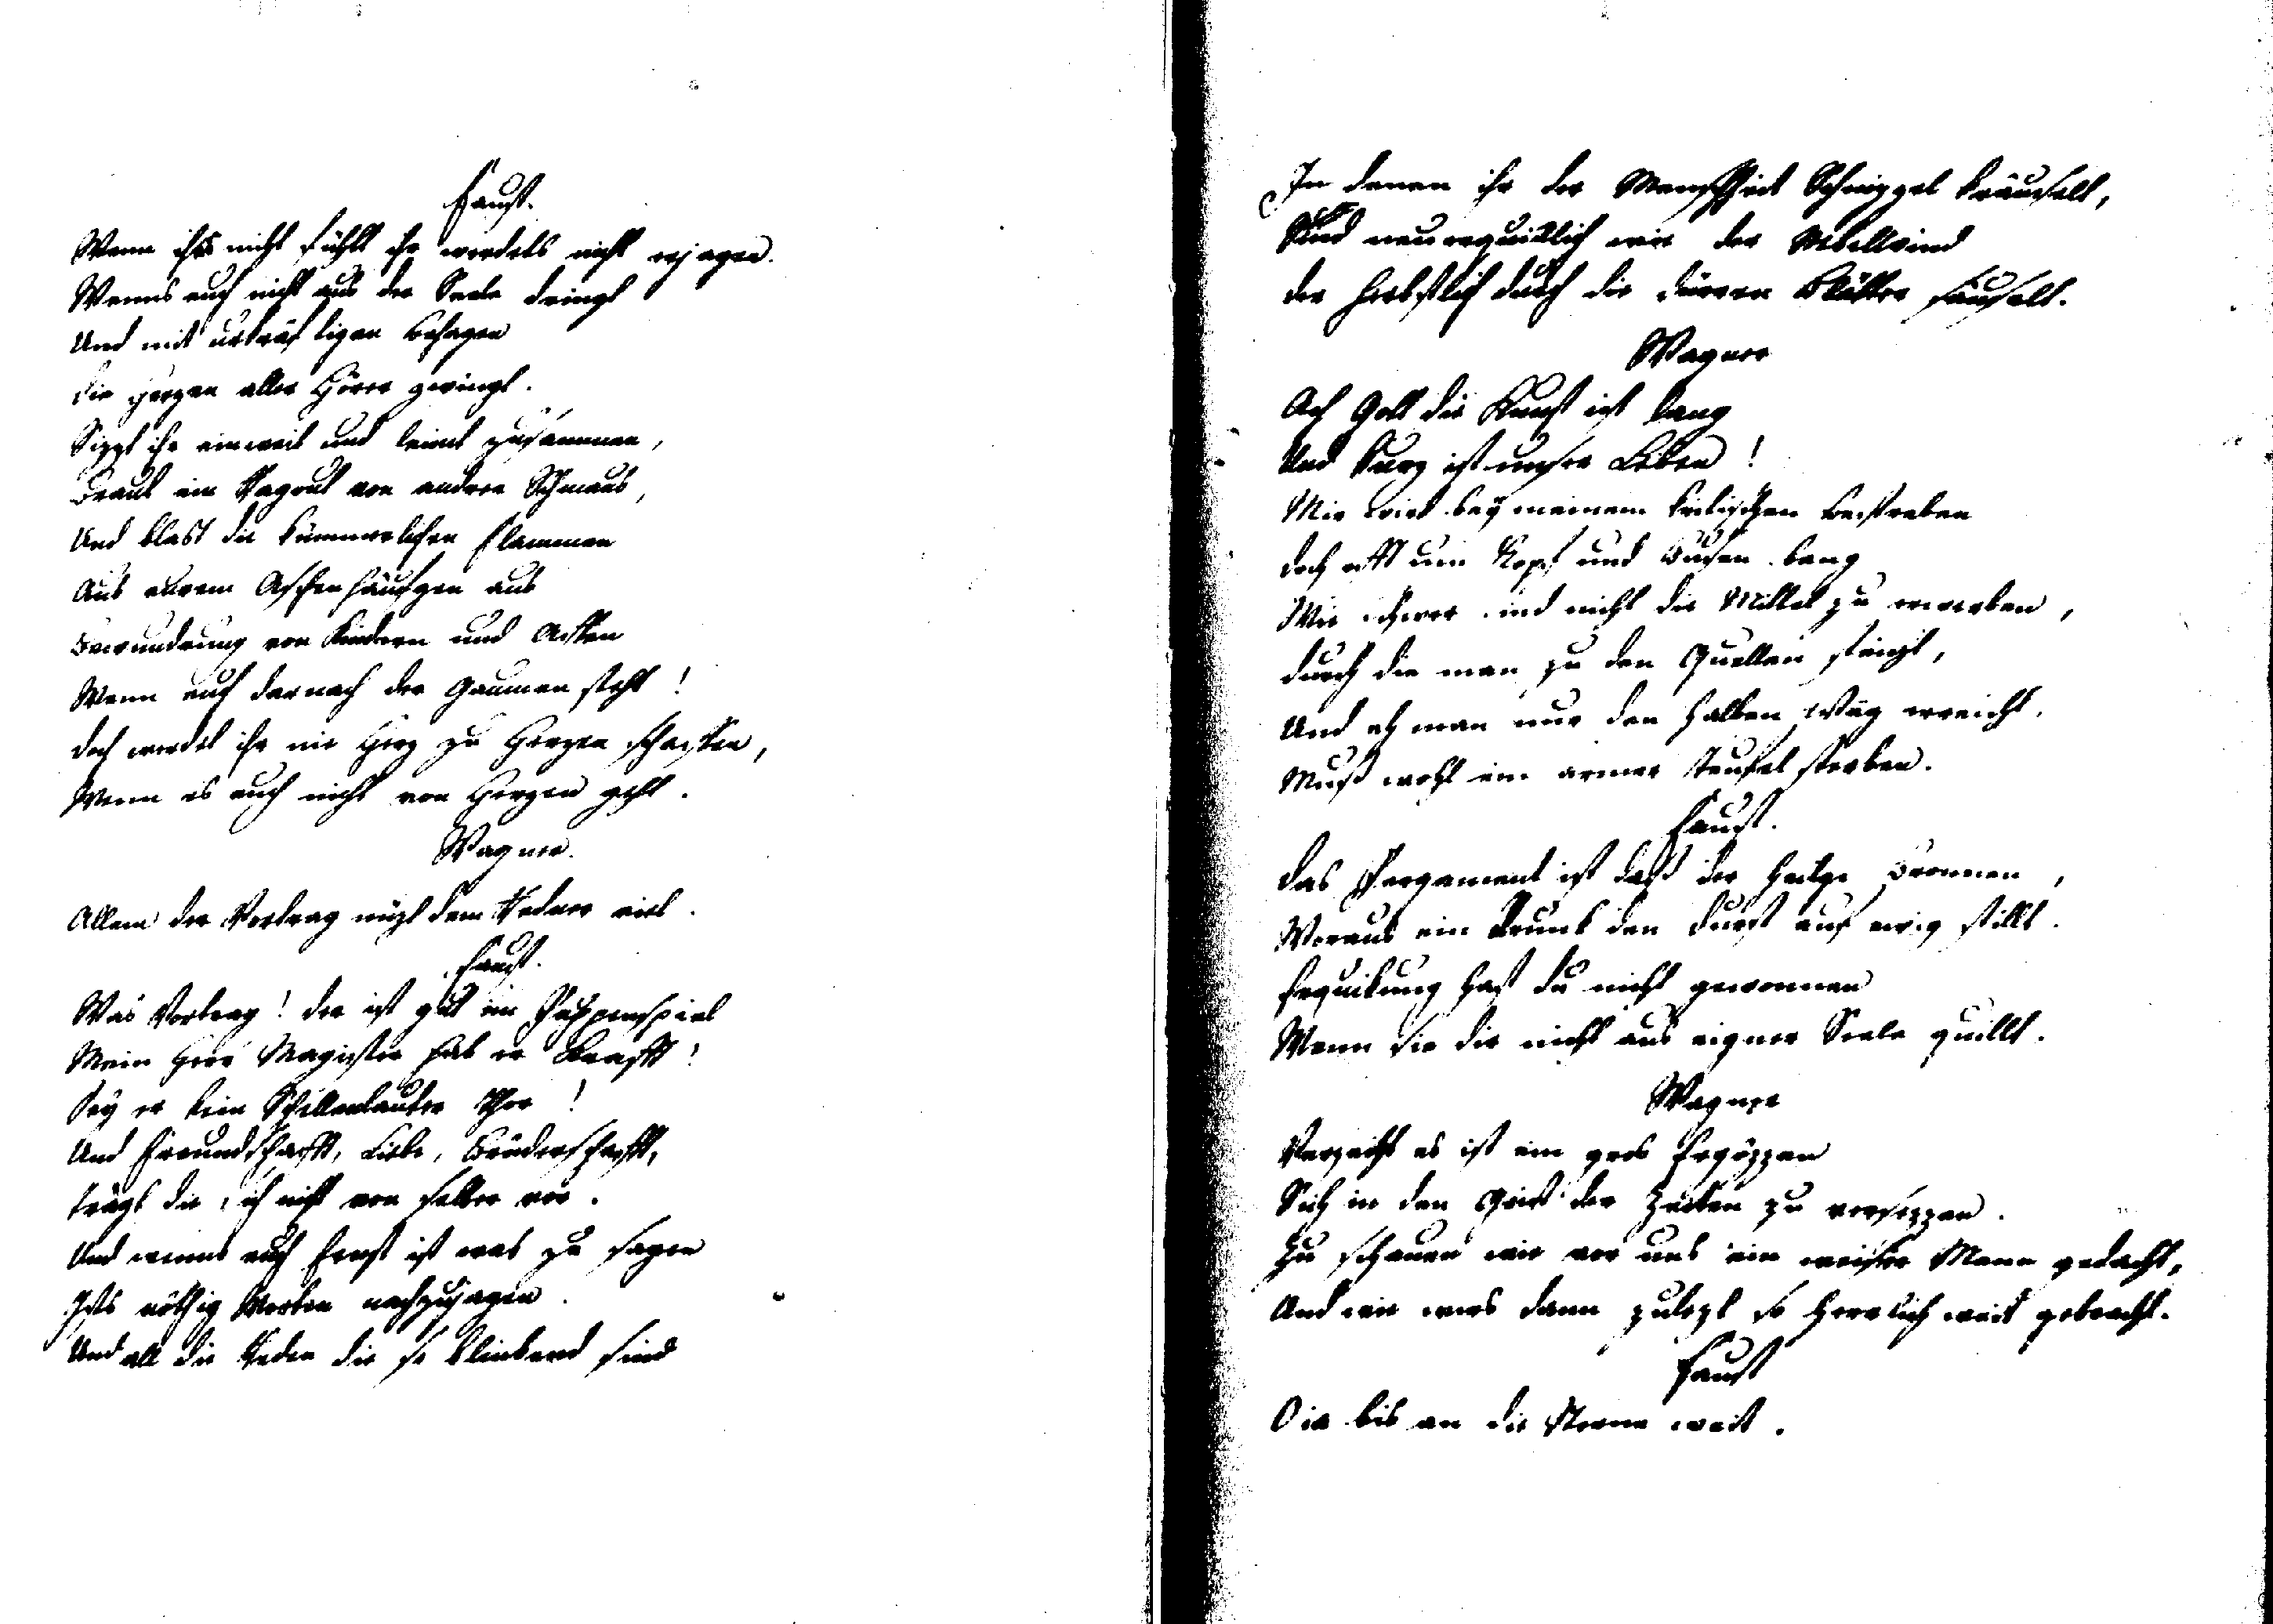 Faust.
Wenn ihrs nicht fühlt ihr werdets nicht erjagen.
Wenns euch nicht aus der Seele dringt
Und mit urkräftigen Behagen
Die Herzen aller Hörer zwingt.
Sizzt ihr einweil und leimt zusammen,
Braut ein Ragout von andrer Schmaus,
Und blast die kümmerlichen Flammen
Aus eurem Aschenhäufgen aus
Bewundrung von Kindern und Affen
Wenn euch darnach der Gaumen steht!
Doch werdet ihr nie Herz zu Herzen schaffen,
Wenn es euch nicht von Herzen geht.
Wagner.
Allein der Vortrag nüzt dem Redner viel.
Faust.
Was Vortrag! der ist gut im Puppenspiel
Mein Herr Magister hab er Krafft!
Sey er kein Schellenlauter Thor!
Und Freundschafft, Liebe, Brüderschafft,
Trägt die sich nicht von selber vor.
Und wenns euch Ernst ist was zu sagen
Ists nöthig Worten nachzujagen.
Und all die Reden die so blinkend sind
In denen ihr der Menschheit Schnizzel kräuselt,
Sind unerquicklich wie der Nebelwind
der herbstlich durch die dürren Blätter säuselt.
Wagner
Ach Gott die Kunst ist lang
Und kurz ist unser Leben!
Mir wird bey meinem kritischen Bestreben
Doch offt um Kopf und Busen bang
Wie schwer sind nicht die Mittel zu erwerben,
durch die man zu den Quellen steigt,
Und eh man nur den halben Weeg erreicht,
Muss wohl ein armer Teufel sterben.
Faust.
Das Pergament ist das der heilge Bronnen,
Woraus ein Trunk den Durst auf ewig stillt.
Erquickung hast du nicht gewonnen
Wenn sie dir nicht aus eigner Seele quillt.
Wagner
Verzeiht es ist ein gros Ergözzen
Sich in den Geist der Zeiten zu versezzen.
Zu schauen wie vor uns ein weiser Mann gedacht,
Und wie wirs dann zulezt so herrlich weit gebracht.
Faust
O ia bis an die Sterne weit.